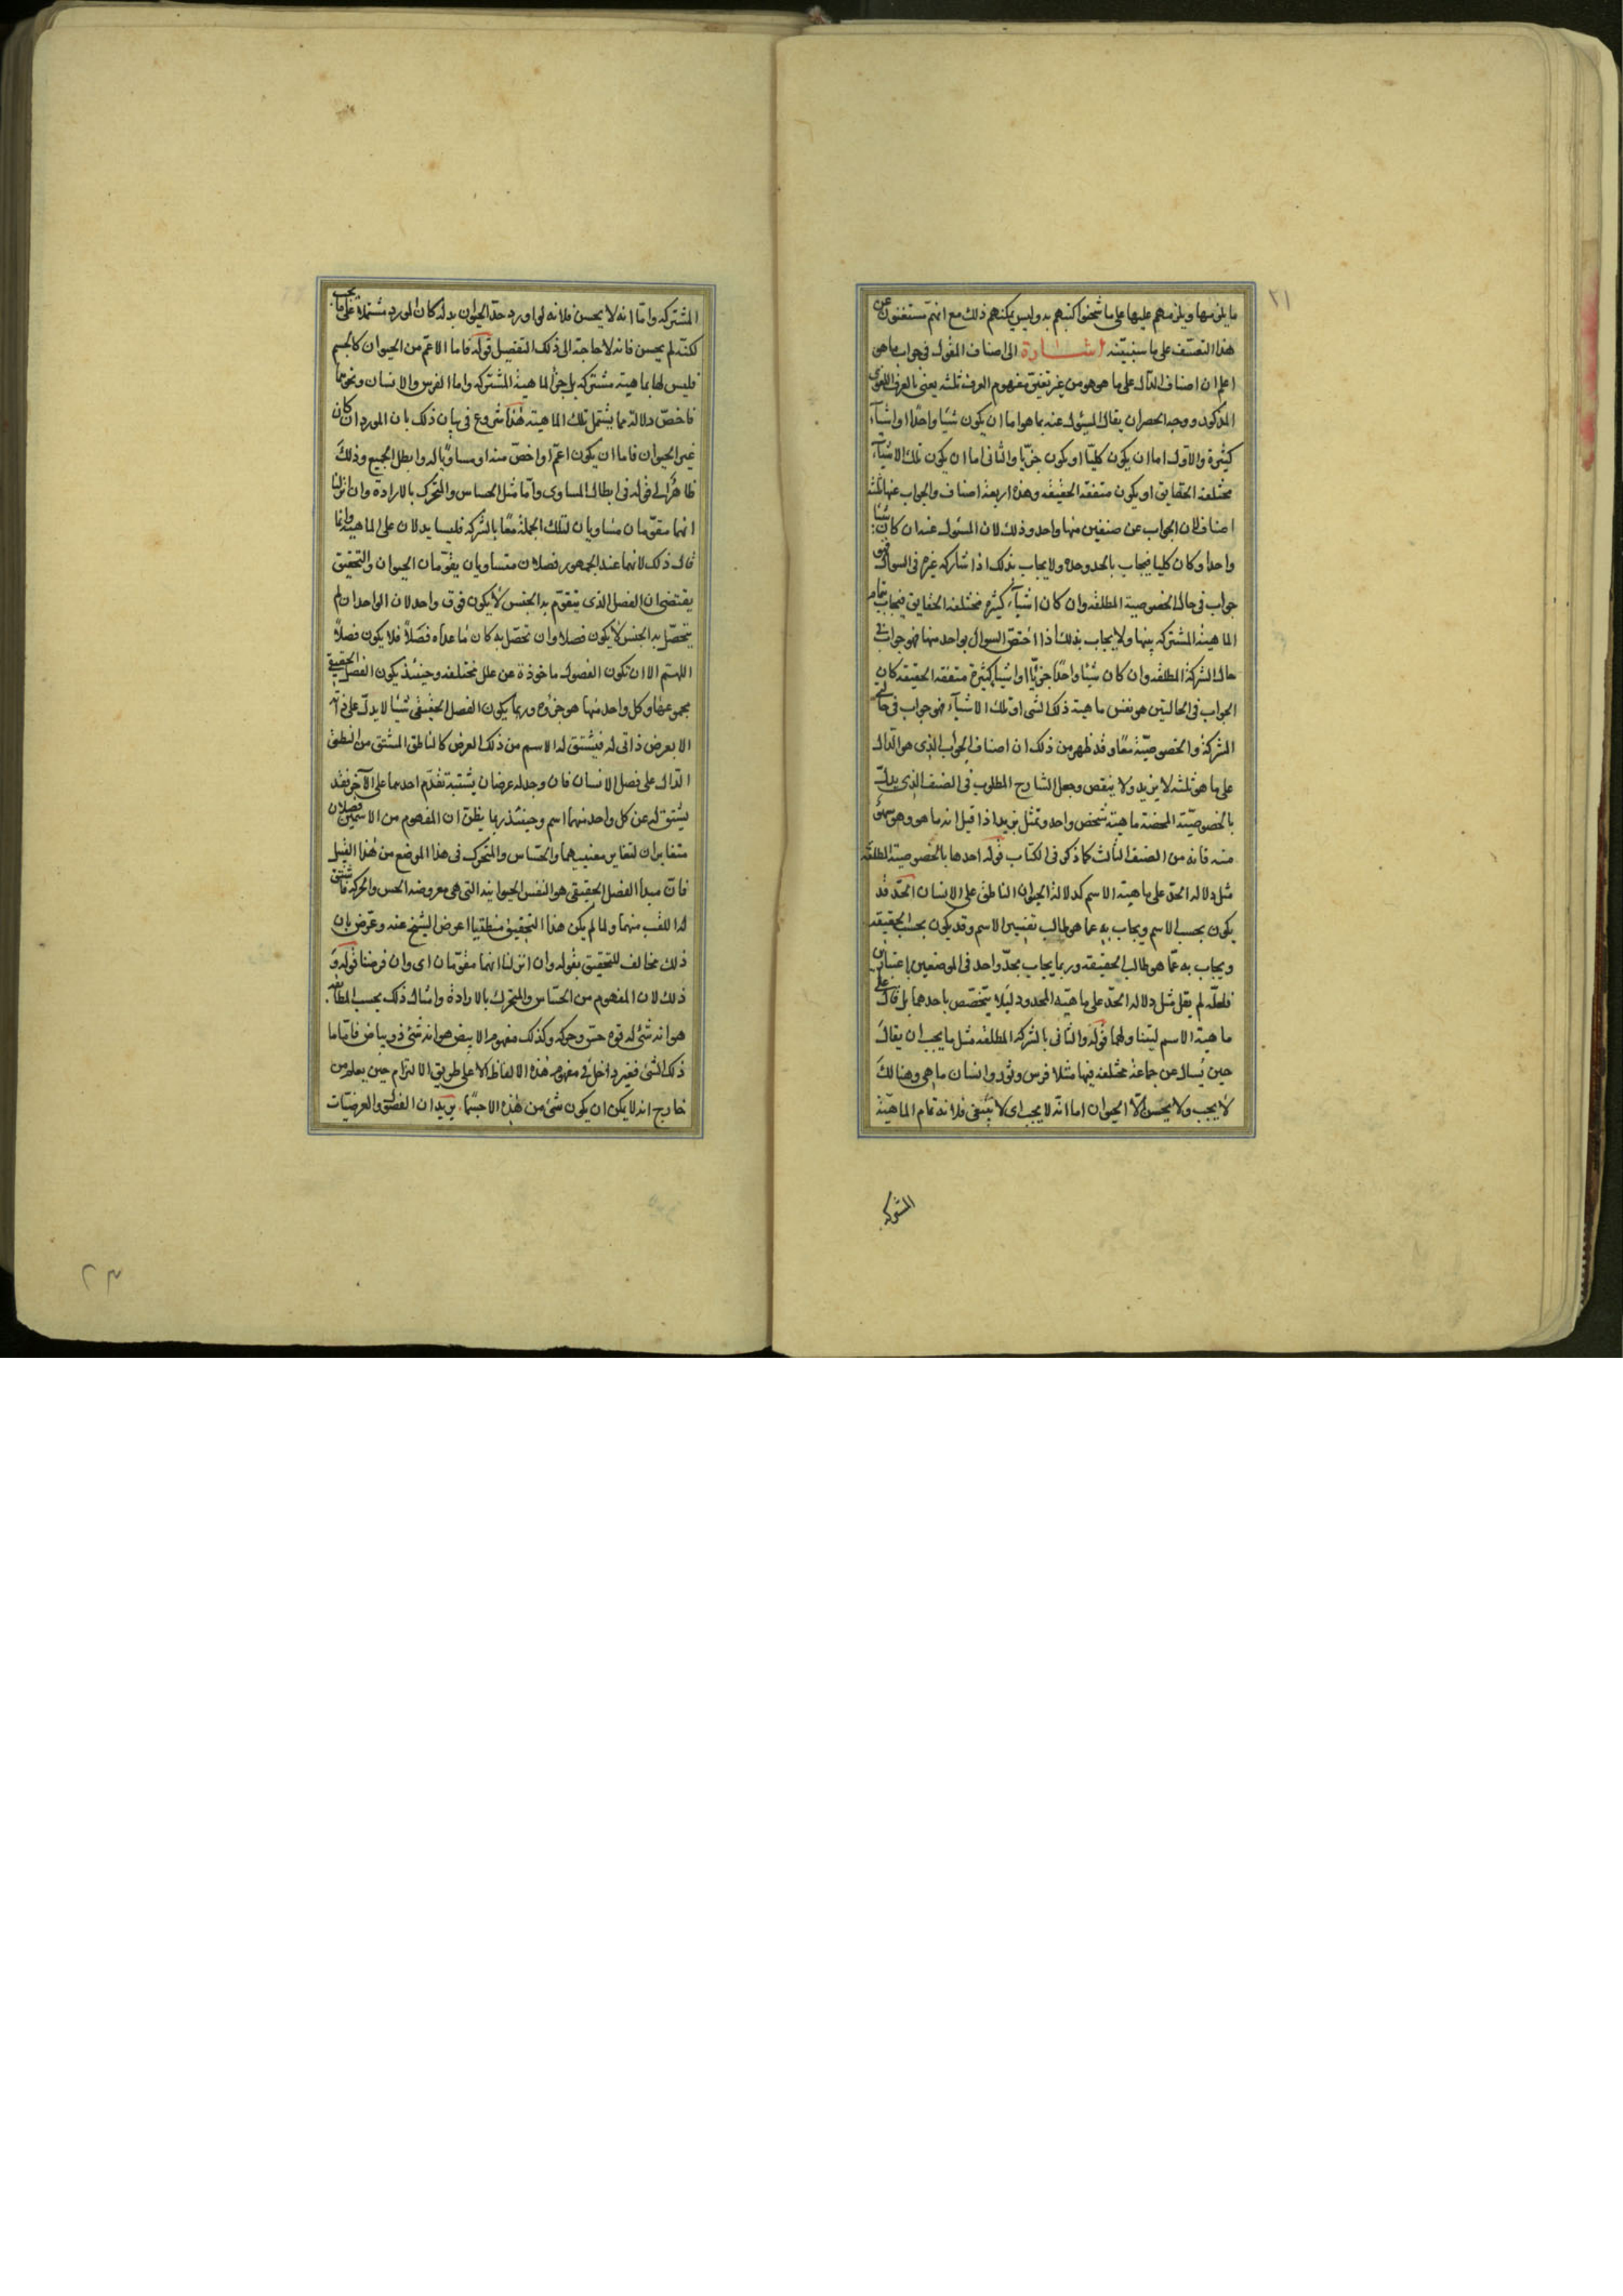 ٢١
ما يلزمها ويلزمهم عليها على ما شحنوا كتبهم به وليس يمكنهم ذلك مع انهم مستغنون عن
هذا التعسف على ما سنبينه اشارة الى اصناف المقول فى جواب ما هو
اعلم ان اصناف الدال على ما هو هو من غير تغيير مفهوم العرف ثلثة يعنى بالعرف اللغوى
المذكور ووجه الحصر ان يقال المسئول عنه بما هو اما ان يكون شيئا واحدا او اشياء
كثيرة والاول اما ان يكون كليا او يكون جزئيا والثانى اما ان يكون تلك الاشياء
مختلفة الحقايق او يكون متفقة الحقيقة وهذه اربعة اصناف والجواب عنها ثلثة
اصناف لان الجواب عن صنفين منها واحد وذلك لان المسئول عنه ان كان شيئا
واحدا وكان كليا فيجاب بالحد وحده ولا يجاب بذلك اذا شاركه غيره فى السوال فهو
جواب فى حال الخصوصية المطلقة وان كان اشياء كثيرة مختلفة الحقايق فيجاب بتمام
الماهية المشتركة بينها ولا يجاب بذلك اذا اختص السوال بواحد منها فهو جواب فى
حال الشركة المطلقة وان كان شيئا واحدا جزئيا او اشياء كثيرة متفقة الحقيقة كان
الجواب فى الحالتين هو نفس ماهية ذلك الشى او تلك الاشياء فهو جواب فى حالى
الشركة والخصوصية معا وقد ظهر من ذلك ان اصناف الجواب الذى هو الدال
على ما هو ثلثة لا يزيد ولا ينقص وجعل الشارح المطلوب فى الصنف الذى يدل
بالخصوصية المحضة ماهية شخص واحد وتمثل بزيد اذا قيل انه ما هو وهو سهو
منه فانه من الصنف الثالث كما ذكر فى الكتاب قوله احدها بالخصوصية المطلقة
مثل دلالة الحد على ماهية الاسم كدلالة الحيوان الناطق على الانسان الحد قد
يكون بحسب الاسم ويجاب به عما هو طالب تفسير الاسم وقد يكون بحسب الحقيقة
ويجاب به عما هو طالب الحقيقة وربما يجاب بحد واحد فى الموضعين باعتبارين
فلعله لم يقل مثل دلالة الحد على ماهية المحدود لئلا يتخصص باحدهما بل قال على
ماهية الاسم ليتناولهما قوله والثانى بالشركة المطلقة مثل ما يجب ان يقال
حين يسال عن جماعة مختلفة فيها مثلا فرس وثور وانسان ما هى وهنالك
لا يجب ولا يحسن الا الحيوان اما انه لا يجب اى لا ينبغى فلانه تمام الماهية
المشتركه
المشتركه واما انه لا يحسن فلانه لو اورد حد الحيوان بدله كان المورد مشتملا على ما يجب
لكنه لم يحسن فانه لا حاجة الى ذلك التفصيل قوله فاما الاعم من الحيوان كالجسم
فليس لها بماهية مشتركه بل جزء الماهية المشتركه واما الفرس والانسان ونحوهما
فاخص دلالة مما يشتمل تلك الماهية هذا شروع فى بيان ذلك بان المورد ان كان
غير الحيوان فاما ان يكون اعم او اخص منه او مساويا له وابطل الجميع وذلك
ظاهر الى قوله فى ابطال المساوى واما مثل الحساس والمتحرك بالارادة وان انزلنا
انهما مقومان مساويان لتلك الجملة معا بالشركة فليسا يدلان على الماهية وانما
قال ذلك لانهما عند الجمهور فصلان متساويان يقومان الحيوان والتحقيق
يقتضى ان الفصل الذى يتقوم به الجنس لا يكون فوق واحد لان الواحد ان لم
يتحصل به الجنس لا يكون فصلا وان تحصل به كان ما عداه فضلا فلا يكون فصلا
اللهم الا ان تكون الفصول ماخوذة عن علل مختلفة وحينئذ يكون الفصل الحقيقى
مجموعها وكل واحد منها هو جزؤه وربما يكون الفصل الحقيقى شيئا لا يدل على ذاته
الا بعرض ذاتى له فيشتق له الاسم من ذلك العرض كالناطق المشتق من النطق
الدال على فصل الانسان فان وجد له عرضان يشتبه تقدم احدهما على الآخر فقد
يشتق له عن كل واحد منهما اسم وحينئذ ربما يظن ان المفهوم من الاسمين فصلان
متغايران لتغاير معنييهما والحساس والمتحرك فى هذا الموضع من هذا القبيل
فان مبدأ الفصل الحقيقى هو النفس الحيوانية التى هى معروضة الحس والحركة فاشتق
له اللقب منهما ولما لم يكن هذا التحقيق منطقيا اعرض الشيخ عنه وعرض بان
ذلك مخالف للتحقيق بقوله وان انزلنا انهما مقومان اى وان فرضنا قوله و
ذلك لان المفهوم من الحساس والمتحرك بالارادة وامثال ذلك بحسب المطابقة
هو انه شئ له قوة حس وحركه وكذلك مفهوم الابيض هو انه شئ ذو بياض فاما ما
ذلك الشئ فغير داخل فى مفهوم هذه الالفاظ الا على طريق الالتزام حين يعلم من
خارج انه لا يمكن ان يكون شئ من هذه الا جسما يريد ان الفصول والعرضيات